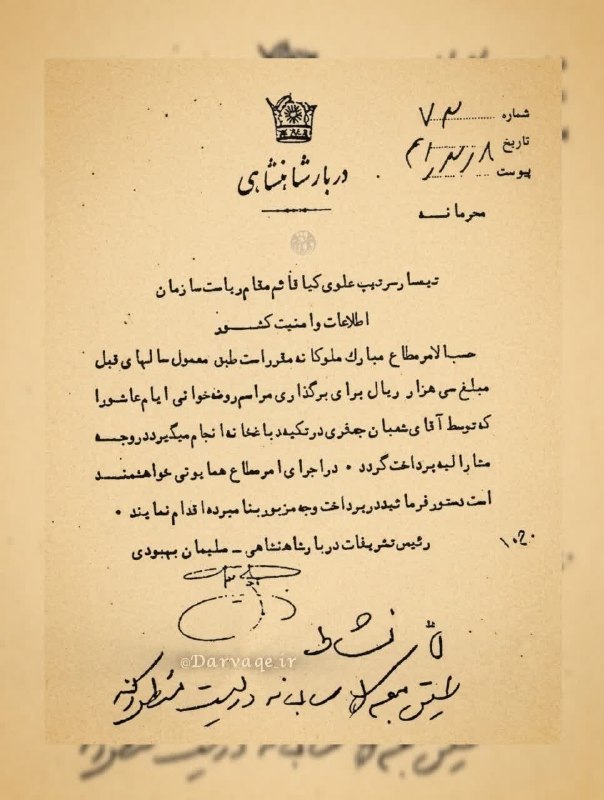 شماره ۷۳
تاریخ
پیوست
دربار شاهنشاهی
محرمانه
تیمسار سرتیپ علوی کیا قائم مقام ریاست سازمان
اطلاعات و امنیت کشور
حسب الامر مطاع مبارک ملوکانه مقرر است طبق معمول سالهای قبل
مبلغ سی هزار ریال برای برگذاری مراسم روضه خوانی ایام عاشورا
که توسط آقای شعبان جعفری در تکیه دباغخانه انجام میگیرد در وجه
مشارالیه پرداخت گردد ۰ در اجرای امر مطاع همایونی خواهشمند
است دستور فرمائید در پرداخت وجه مزبور بنامبرده اقدام نمایند ۰
رئیس تشریفات دربار شاهنشاهی - سلیمان بهبودی
نشاط
@Darvaqe.ir
طبق معمول در لیست منظور